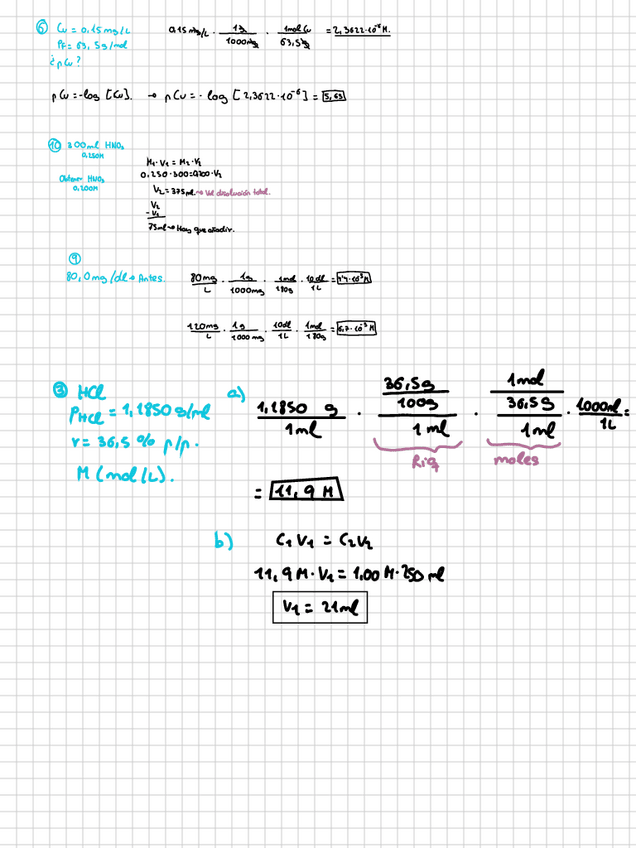 ⑥ Cu = 0,15 mg/L
Pf = 63,5 g/mol
¿pCu?
0,15 mg/L · 1g/1000mg · 1mol Cu/63,5g = 2,3622·10⁻⁶ M.
pCu = -log [Cu]. → pCu = - log [2,3622·10⁻⁶] = 5,63
⑩ 300ml HNO₃
0,250M
Obtener HNO₃
0,200M
M₁·V₁ = M₂·V₂
0,250·300 = 0,200·V₂
V₂ = 375ml. → Vol disolución total.
V₂
- V₁
75ml → Hay que añadir.
⑨
80,0 mg/dl → Antes.
80mg/L · 1g/1000mg · 1mol/180g · 10dl/1L = 4,4·10⁻³ M
120mg/L · 1g/1000mg · 10dl/1L · 1mol/180g = 6,7·10⁻³ M
③ HCl
ρHCl = 1,1850 g/ml
r = 36,5 % p/p.
M (mol/L).
a) 1,1850 g/1ml · 36,5g/100g/1ml · 1mol/36,5g/1ml · 1000ml/1L =
Riq moles
= 11,9 M
b) C₁V₁ = C₂V₂
11,9 M·V₁ = 1,00 M·250 ml
V₁ = 21ml